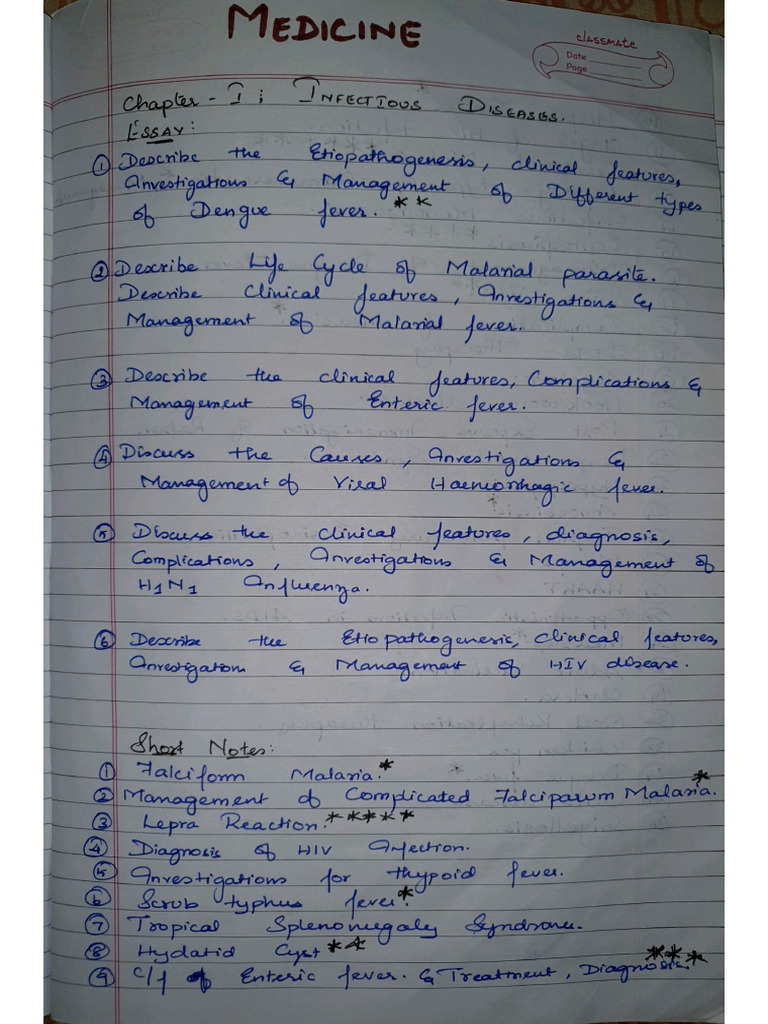 MEDICINE
classmate
Date
Page
Chapter - I ; INFECTIOUS DISEASES.
ESSAY:
① Describe the Etiopathogenesis, clinical features,
Investigations & Management of Different types
of Dengue fever. **
② Describe Life Cycle of Malarial parasite.
Describe Clinical features, Investigations &
Management of Malarial fever.*
③ Describe the clinical features, Complications &
Management of Enteric fever.
④ Discuss the Causes, Investigations &
Management of Viral Haemorrhagic fever.
⑤ Discuss the clinical features, diagnosis,
Complications, Investigations & Management of
H1N1 Influenza.
⑥ Describe the Etiopathogenesis, Clinical features,
Investigation & Management of HIV disease.
Short Notes:
① Falciform Malaria.*
② Management of Complicated Falciparum Malaria.*
③ Lepra Reaction.*****
④ Diagnosis of HIV Infection.
⑤ Investigations for thypoid fever.
⑥ Scrub typhus fever.*
⑦ Tropical Splenomegaly Syndrome.
⑧ Hydatid Cyst **
⑨ C/f of Enteric fever. & Treatment, Diagnosis.****